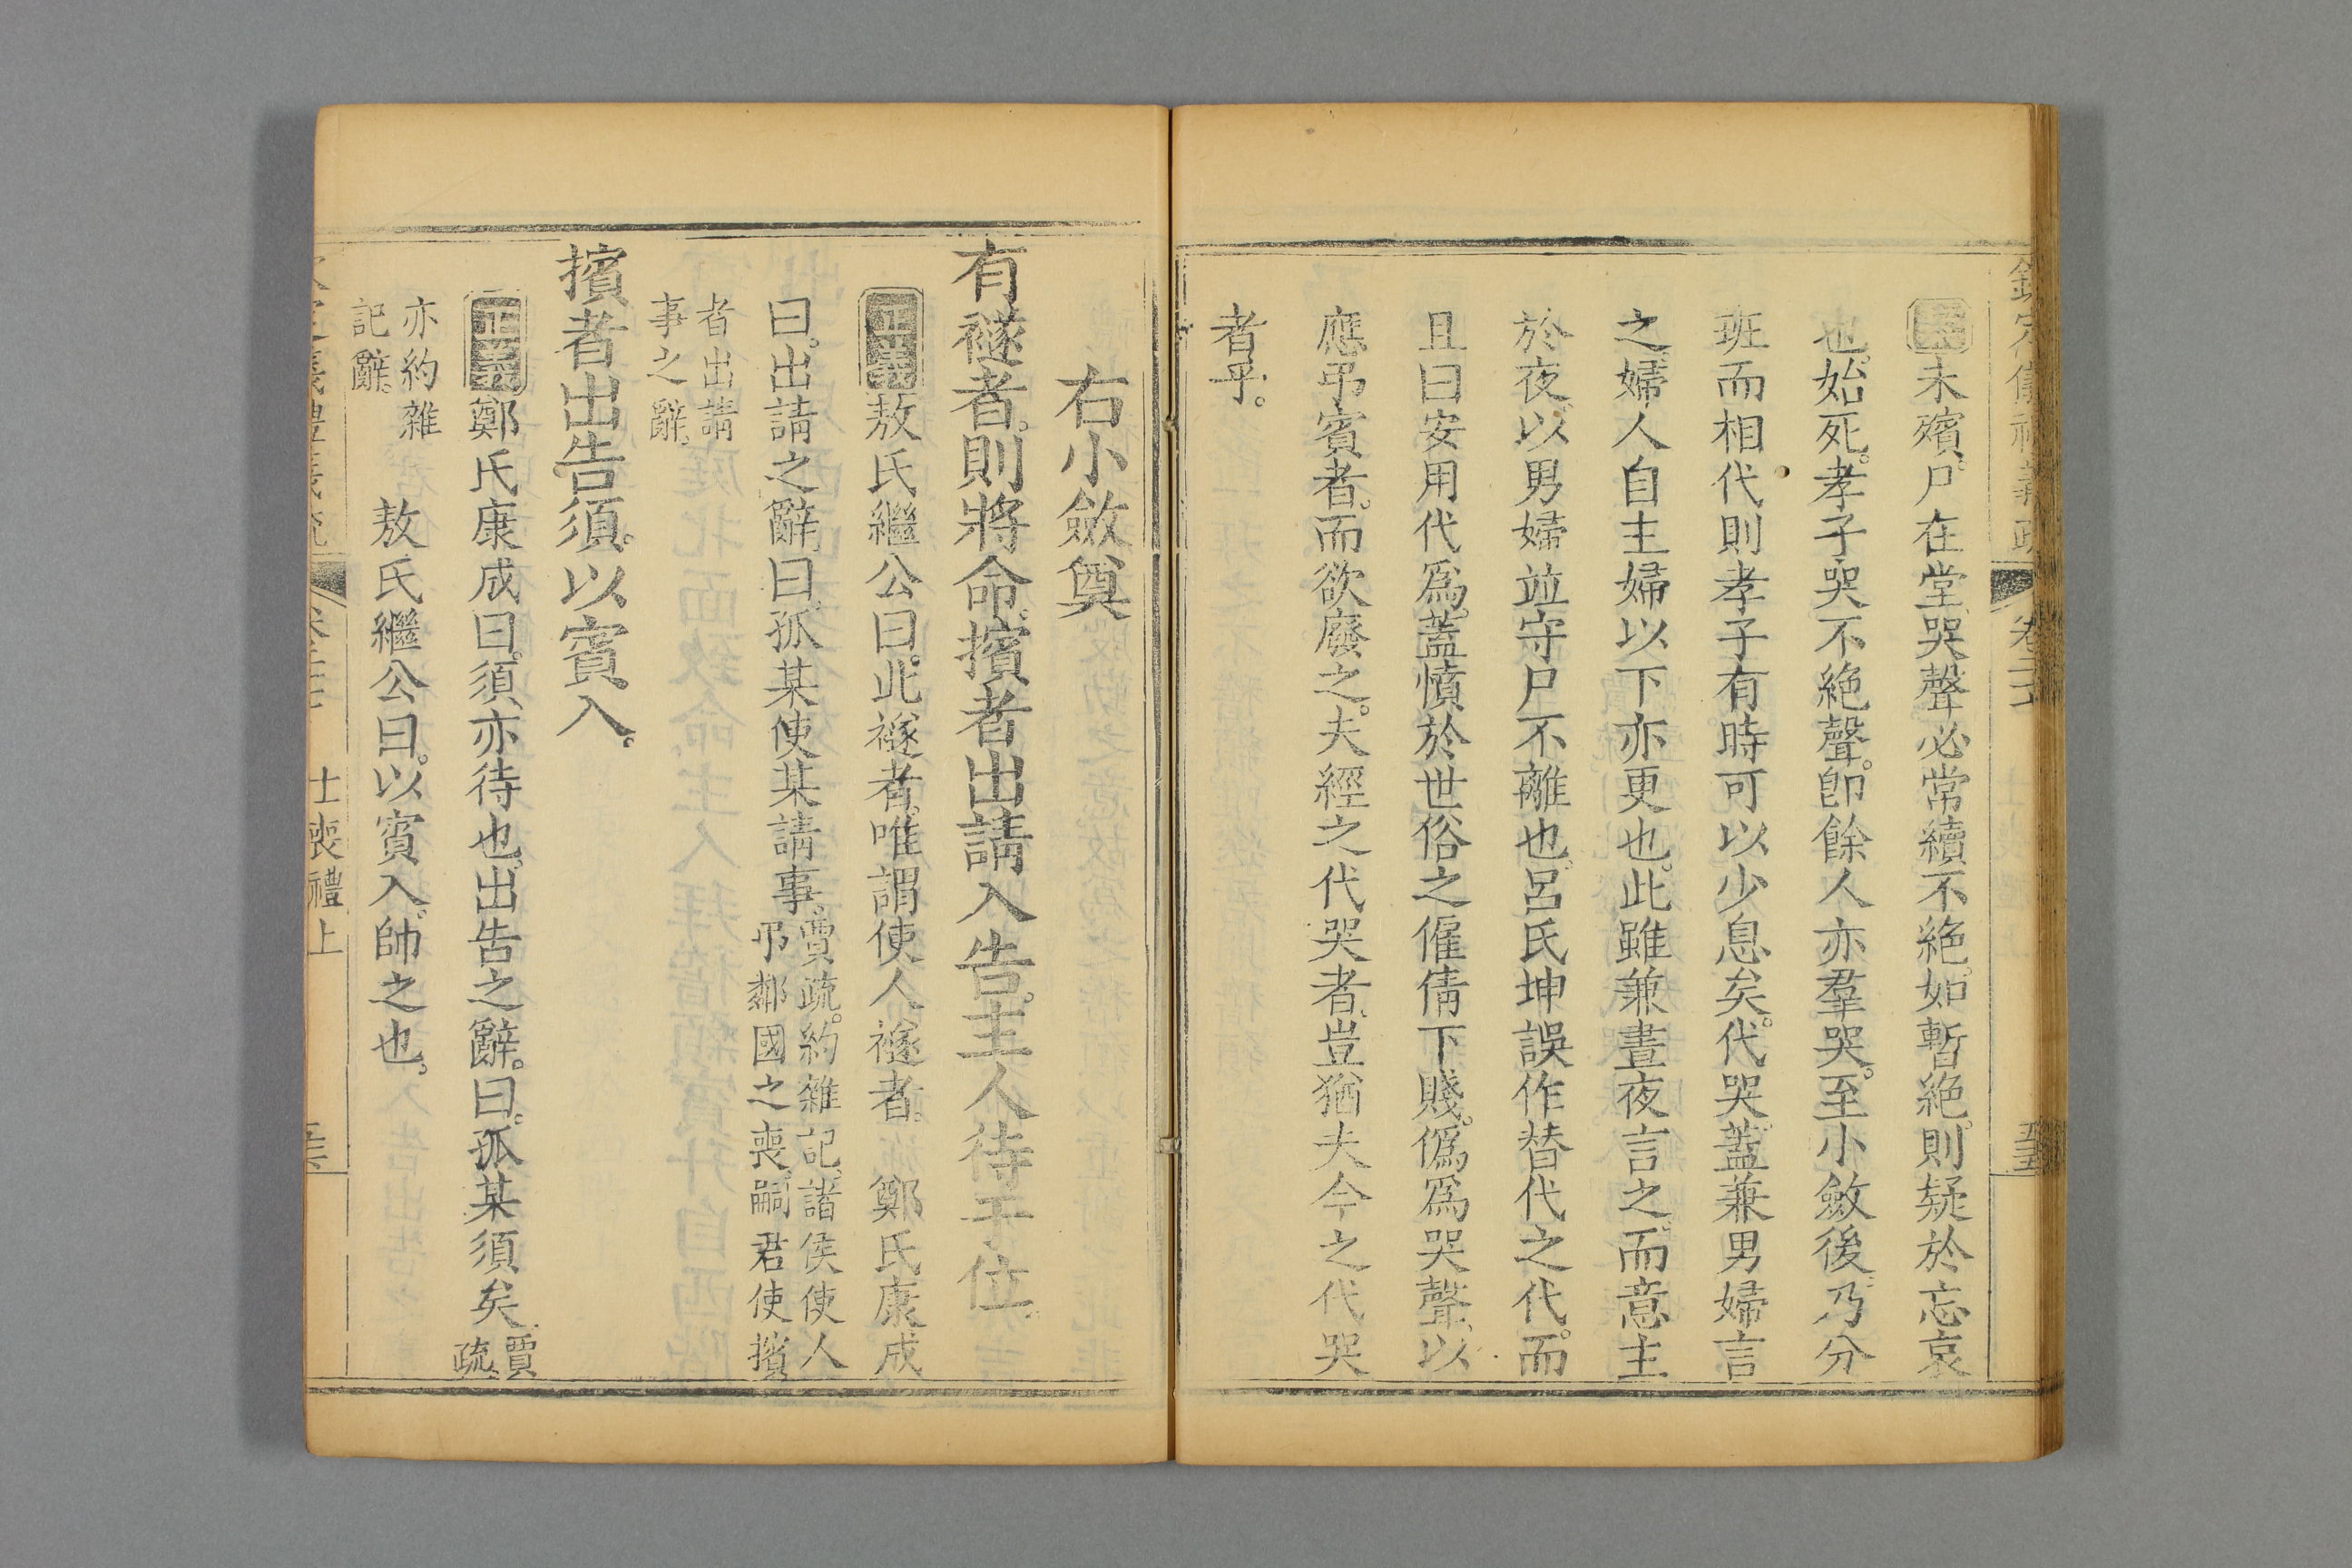 未殯尸在堂哭聲必常續不絶如暫絶則疑於忘哀
也始死孝子哭不絶聲卽餘人亦羣哭至小斂後乃分
班而相代則孝子有時可以少息矣代哭蓋兼男婦言
之婦人自主婦以下亦更也此雖兼晝夜言之而意主
於夜以男婦並守尸不離也呂氏坤誤作替代之代而
且曰安用代爲蓋憤於世俗之僱倩下賤僞爲哭聲以
應弔賓者而欲廢之夫經之代哭者豈猶夫今之代哭
者乎
右小斂奠
有襚者則將命擯者出請入告主人待于位
正義敖氏繼公曰此襚者唯謂使人襚者 鄭氏康成
曰出請之辭曰孤某使某請事賈疏約雜記諸侯使人
弔鄰國之喪嗣君使擯
者出請
事之辭
擯者出告須以賓入
正義鄭氏康成曰須亦待也出告之辭曰孤某須矣賈
疏
亦約雜
記辭 敖氏繼公曰以賓入帥之也
士喪禮上